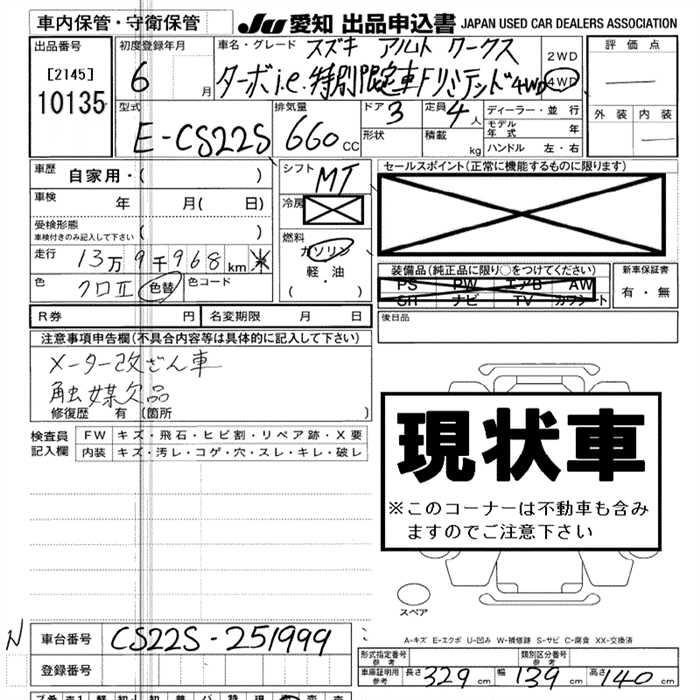 車内保管・守衛保管 JU 愛知 出品申込書 JAPAN USED CAR DEALERS ASSOCIATION
出品番号 [2145] 10135
初度登録年月 6 月
車名・グレード スズキ アルト ワークス
ターボi.e.特別限定車Fリミテッド 4WD
2WD
4WD
評価点
外装 内装
型式 E-CS22S
排気量 660 cc
ドア 3
定員 4 人
形状
積載 kg
ディーラー・並行
モデル年式 年
ハンドル 左・右
車歴 自家用・( )
車検 年 月( 日)
受検形態
車検付きのみ記入して下さい ( )
走行 13万9千968 km 米
色 クロⅡ 色替 色コード
シフト MT
冷房
燃料
ガソリン
軽・油
( ・ )
セールスポイント(正常に機能するものに限ります)
装備品(純正品に限り○をつけてください)
PS PW エアB AW
SR ナビ TV カワシート
新車保証書
有・無
後日品
R券 円 名変期限 月 日
注意事項申告欄(不具合内容等は具体的に記入して下さい)
メーター改ざん車
触媒欠品
修復歴 有 (箇所 )
検査員記入欄
FW キズ・飛石・ヒビ割・リペア跡・X要
内装 キズ・汚レ・コゲ・穴・スレ・キレ・破レ
現状車
※このコーナーは不動車も含み
ますのでご注意下さい
スペア
A-キズ E-エクボ U-凹み W-補修跡 S-サビ C-腐食 XX-交換済
N 車台番号 CS22S-251999
登録番号
形式指定番号 参考
類別区分番号 参考
車庫証明用 参考 長さ 329 cm 幅 139 cm 高さ 140 cm